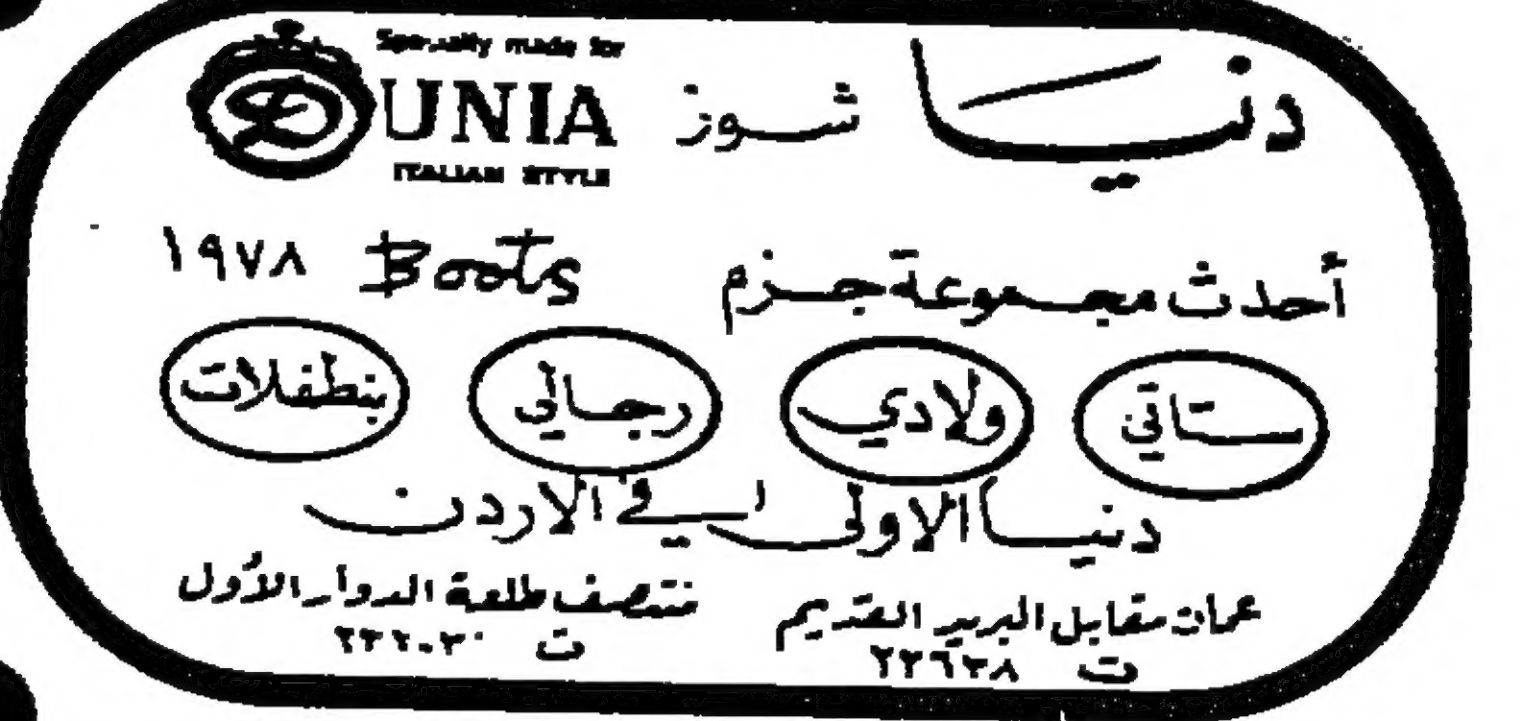 دنيا شوز
Specially made for
DUNIA
ITALIAN STYLE
أحدث مجموعة جزم Boots ١٩٧٨
ستاتي ولادي رجالي بنطفلات
دنيا الاولى في الاردن
عمان مقابل البريد القديم
ت ٢٢٦٣٨
منتصف طلعة الدوار الأول
ت